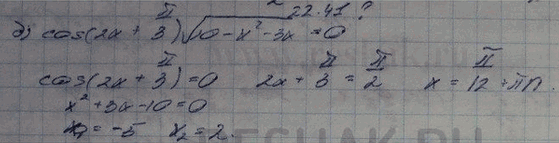 22.41?
д) cos(2x + π/3)√10-x²-3x = 0
cos(2x + π/3) = 0   2x + π/3 = π/2   x = π/12 + πn.
x² + 3x - 10 = 0
x₁ = -5   x₂ = 2.